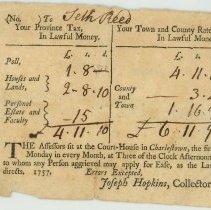 No) To Seth Reed
Your Province Tax, Your Town and County Rates
In Lawful Money. In Lawful Money.
£. s. d. £. s.
Poll, 1.8 4.11.
Houses and Lands, 2.8.10 County and Town 3.
Personal Estate and Faculty 15 1.16.
£ 4.11.10 £ 6.11.
THE Assessors sit at the Court-House in Charlestown, the first
Monday in every Month, at Three of the Clock Afternoon
to whom any Person aggrieved may apply for Ease, as the Law
directs. 1757. Errors Excepted,
Joseph Hopkins, Collector